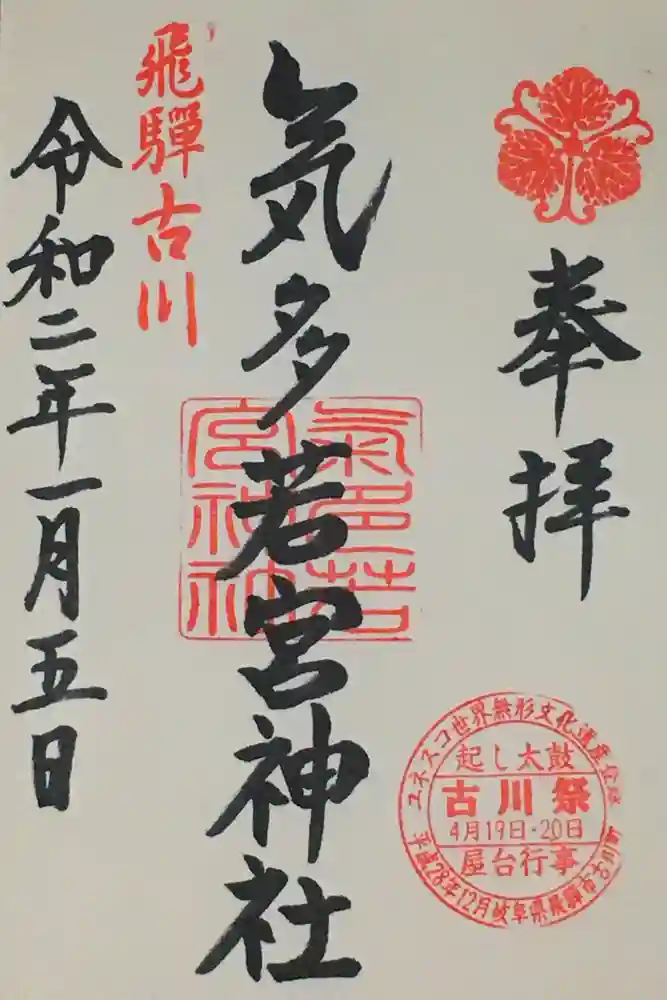 奉拝
気多若宮神社
飛騨古川
令和二年一月五日
氣多若
宮神社
ユネスコ世界無形文化遺産登録
起し太鼓
古川祭
4月19日・20日
屋台行事
平成28年12月岐阜県飛騨市古川町